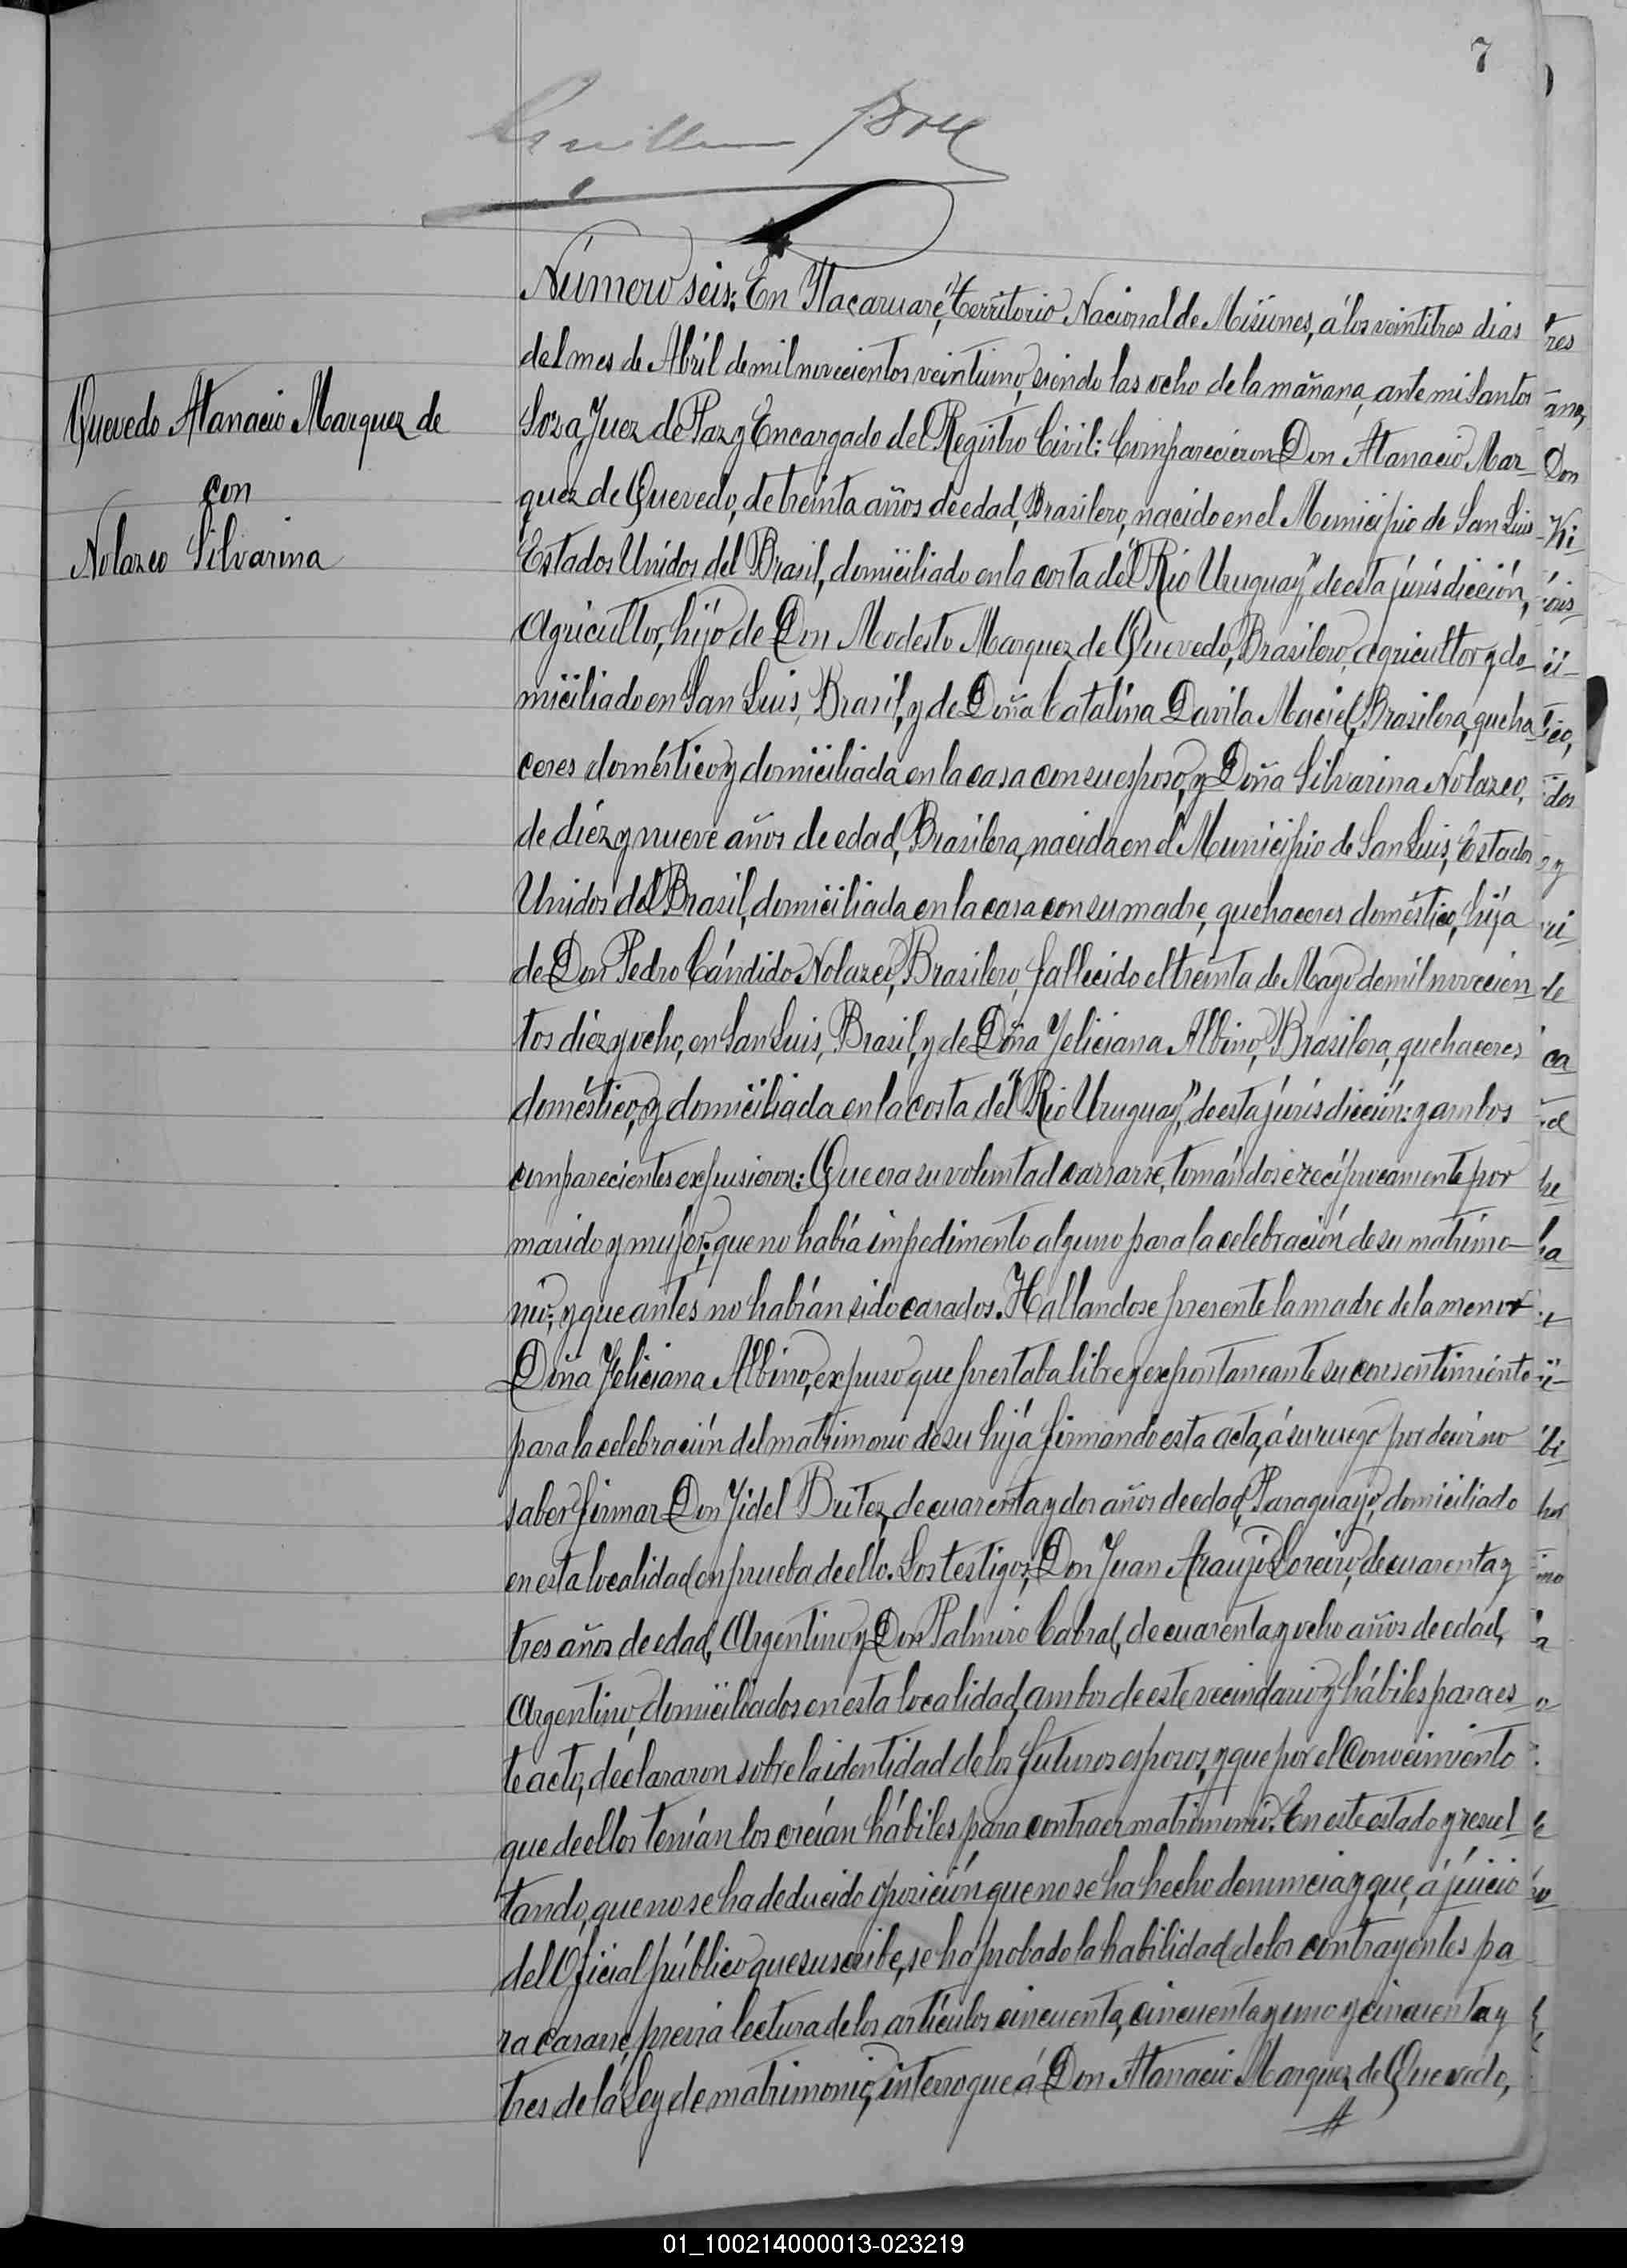 7
Número seis: En Itacaruaré, Territorio Nacional de Misiones, á los veintitres dias
del mes de Abril de mil novecientos veintiuno, siendo las ocho de la mañana, ante mi Santos
Soza, Juez de Paz y Encargado del Registro Civil: Comparecieron Don Atanacio Mar-
quez de Quevedo, de treinta años de edad, Brasilero, nacido en el Municipio de San Luis
Estados Unidos del Brasil, domiciliado en la costa del "Rio Uruguay," de esta júrisdicción,
Agricultor, hijo de Don Modesto Marquez de Quevedo, Brasilero, agricultor y do-
miciliado en San Luis, Brasil, y de Doña Catalina Davila Maciel, Brasilera, queha-
ceres doméstico y domiciliada en la casa con su esposo, y Doña Silvarina Nolazco,
de diéz y nueve años de edad, Brasilera, nacida en el Municipio de San Luis, Estados
Unidos del Brasil, domiciliada en la casa con su madre, quehaceres doméstico, hija
de Don Pedro Cándido Nolazco, Brasilero, fallecido el treinta de Mayo de mil novecien-
tos diéz y ocho, en San Luis, Brasil, y de Doña Feliciana Albino, Brasilera, quehaceres
doméstico, y domiciliada en la costa del "Rio Uruguay," de esta júrisdicción: y ambos
comparecientes expusieron: Que era su voluntad casarse, tomándose recíprocamente por
marido y mujer; que no había impedimento alguno para la celebración de su matrimo-
nio; y que antes no habían sido casados. Hallandose presente la madre de la menor
Doña Feliciana Albino, expuso que prestaba libre y expontaneante su consentimiento
para la celebración del matrimonio de su hija firmando esta acta, á su ruego por decir no
saber firmar Don Fidel Britez, de cuarenta y dos años de edad, Paraguayo, domiciliado
en esta localidad en prueba de ello. Los testigos, Don Juan Araujo Loreiro, de cuarenta y
tres años de edad, Argentino y Don Palmiro Cabral, de cuarenta y ocho años de edad,
Argentino, domiciliados en esta localidad, ambos de este vecindario y hábiles para es-
te acto, declararon sobre la identidad de los futuros esposos, y que por el Conocimiento
que de ellos tenían los creían hábiles para contraer matrimonio. En este estado y resul-
tando, que no se ha deducido oposición que no se ha hecho denuncia y que, á júicio
del Oficial público que suscribe, se ha probado la habilidad de los contrayentes pa
ra casarse, previa lectura de los artículos cincuenta, cincuenta y uno y cincuenta y
tres de la Ley de matrimonio, interrogue á Don Atanacio Marquez de Quevedo,
Quevedo Atanacio Marquez de
con
Nolazco Silvarina
01_100214000013-023219